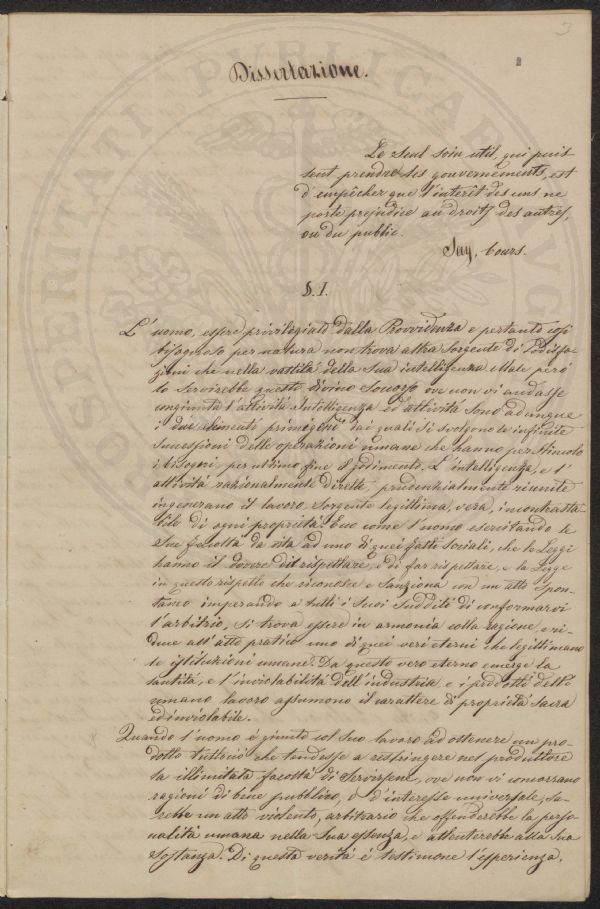 3
Dissertazione.
Le seul soin util, qui puis
sent prendre les gouvernements, est
d'empêcher que l'interêt des uns ne
porte prejudice au droits des autres,
ou du public.
Say, Cours.
§. I.
L'uomo, essere privilegiato dalla Provvidenza e pertanto così
bisognoso per natura non trova altra sorgente di sodisfa-
zioni che nella vastità della sua intelligenza. Male però
lo servirebbe questo divino soccorso ove non vi andasse
congiunta l'attività. Intelligenza ed attività sono adunque
i due elementi primigenî dai quali si svolgono le infinite
successioni delle operazioni umane che hanno per stimolo
i bisogni, per ultimo fine il godimento. L'intelligenza, e l'
attività razionalmente dirette, prudenzialmente riunite
ingenerano il lavoro, sorgente legittima, vera, incontrasta-
bile di ogni proprietà. Ecco come l'uomo esercitando le
sue facoltà da vita ad uno di quei fatti sociali, che le Leggi
hanno il dovere di rispettare, e di far rispettare, e la Legge
in questo rispetto che riconosce e sanziona con un atto spon-
taneo imperando a tutti i suoi sudditi di conformarvi
l'arbitrio, si trova essere in armonia colla ragione, e ri-
duce all'atto pratico uno di quei veri eterni che legittimano
le istituzioni umane. Da questo vero eterno emerge la
santità, e l'inviolabilità dell'industria e i prodotti dell'
umano lavoro assumono il carattere di proprietà sacra
ed inviolabile.
Quando l'uomo è giunto col suo lavoro ad ottenere un pro-
dotto tuttociò che tendesse a respingere nel produttore
la illimitata facoltà di servirsene, ove non vi concorrano
ragioni di bene pubblico, o d'interesse universale, sa-
rebbe un atto violento, arbitrario che offenderebbe la perso-
nalità umana nella sua essenza, e attenterebbe alla sua
sostanza. Di questa verità è testimone l'esperienza,